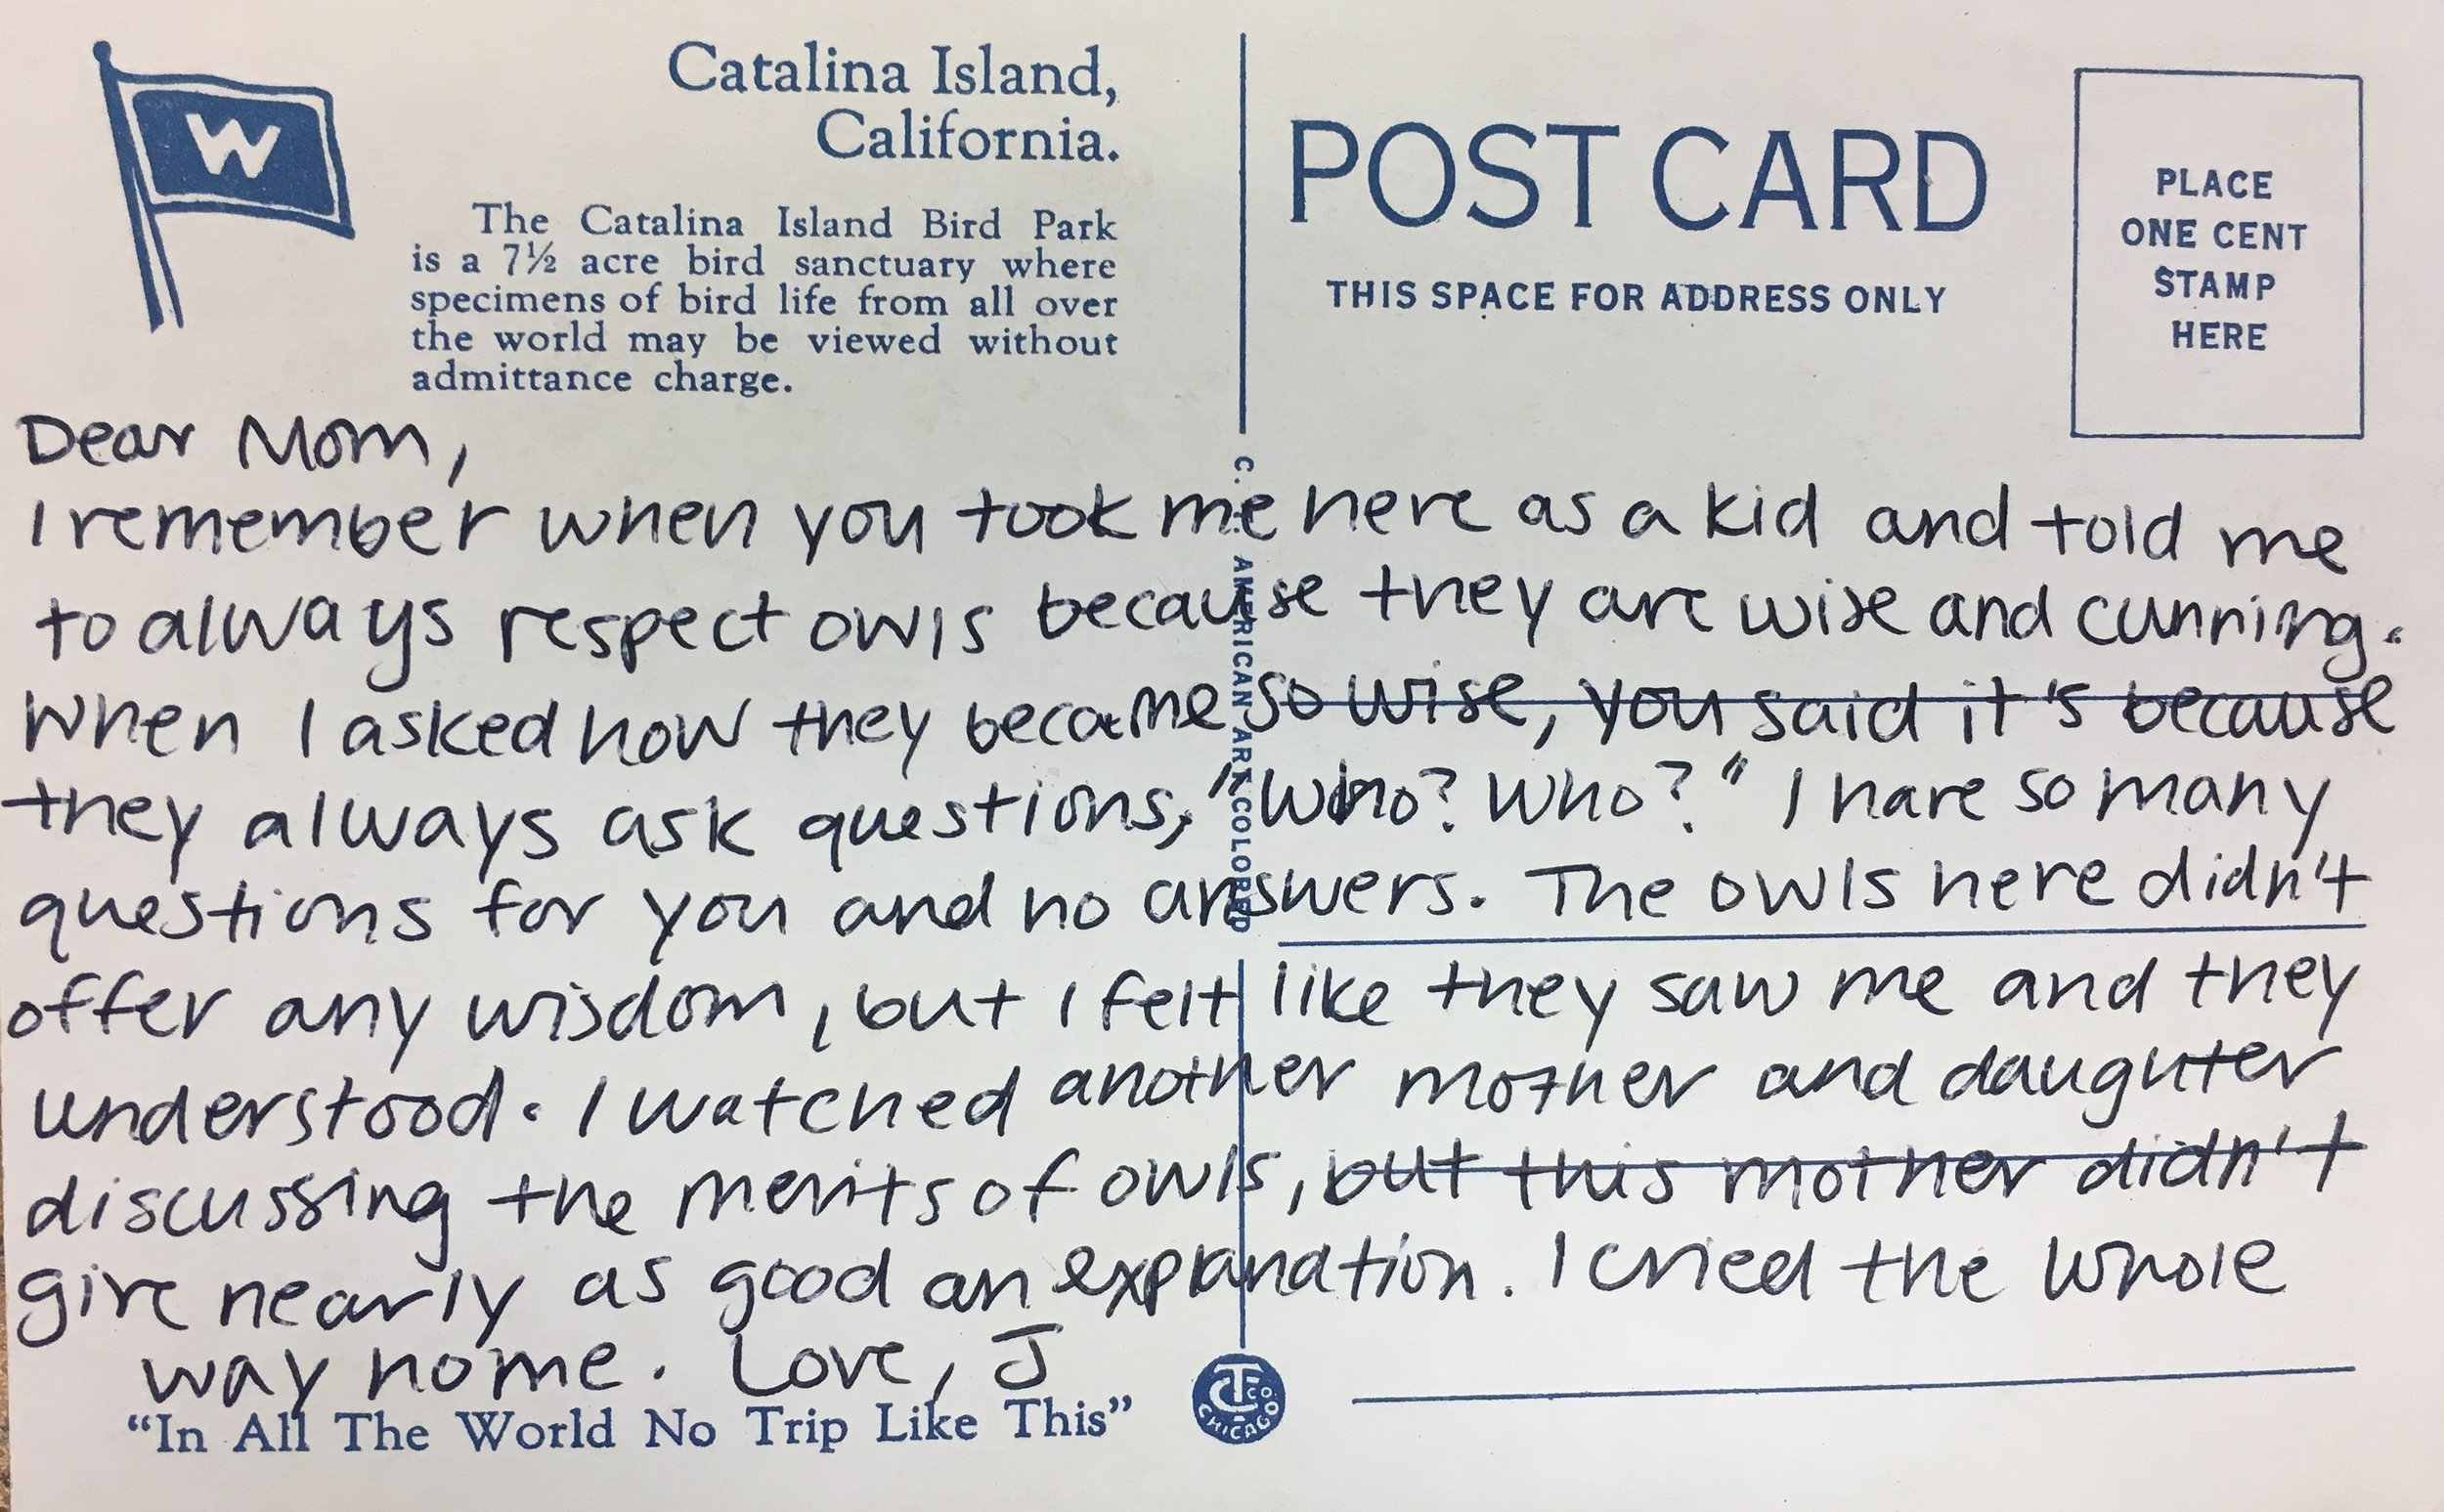 W
Catalina Island,
California.
The Catalina Island Bird Park
is a 7½ acre bird sanctuary where
specimens of bird life from all over
the world may be viewed without
admittance charge.
POST CARD
THIS SPACE FOR ADDRESS ONLY
PLACE
ONE CENT
STAMP
HERE
Dear Mom,
I remember when you took me here as a kid and told me
to always respect owls because they are wise and cunning.
When I asked how they became so wise, you said it's because
they always ask questions, "Who? Who?" I have so many
questions for you and no answers. The owls here didn't
offer any wisdom, but I felt like they saw me and they
understood. I watched another mother and daughter
discussing the merits of owls, but this mother didn't
give nearly as good an explanation. I cried the whole
way home. Love, J
"In All The World No Trip Like This"
C. AMERICAN ART COLORED
CT CO.
CHICAGO